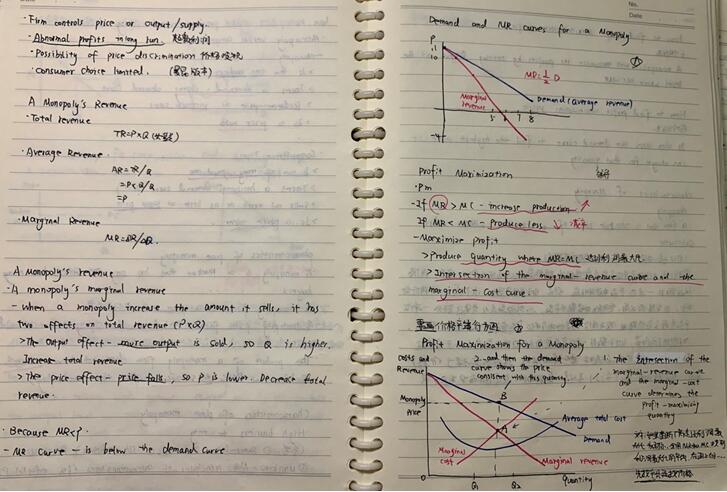 · Firm controls price or output/supply.
· Abnormal profits in long run. 超额利润
· Possibility of price discrimination 价格歧视
· consumer choice limited.
A Monopoly's Revenue
· Total revenue
TR=P×Q
· Average Revenue.
AR=TR/Q
=P×Q/Q
=P
· Marginal Revenue
MR=ΔTR/ΔQ.
A Monopoly's revenue
· A monopoly's marginal revenue
- When a monopoly increase the amount it sells, it has
two effects on total revenue (P×Q)
>The output effect-more output is sold, so Q is higher.
Increase total revenue
> The price effect-price falls, so P is lower. Decrease total
revenue.
· Because MR<P.
- MR curve - is below the demand curve
No.
Date
Demand and MR curves for a Monopoly
P
11
10
MR=1/2 D
Demand (average revenue)
Marginal
revenue
5 6 7 8
-4
Profit Maximization
·Pm
-If MR > MC - increase production
If MR < MC - Produce less
-Maximize profit
>Produce quantity where MR=MC
>Intersection of the marginal-revenue curve and the
marginal-cost curve.
Profit Maximization for a Monopoly
Costs and
Revenue
2. and then the demand
curve shows the price
consistent with this quantity.
1. The intersection of the
marginal-revenue curve
and the marginal-cost
curve determines the
profit-maximizing
quantity
Monopoly
Price
B
A
Average total cost
Demand
Marginal
cost
Marginal revenue
0
Q1
Q2
Quantity